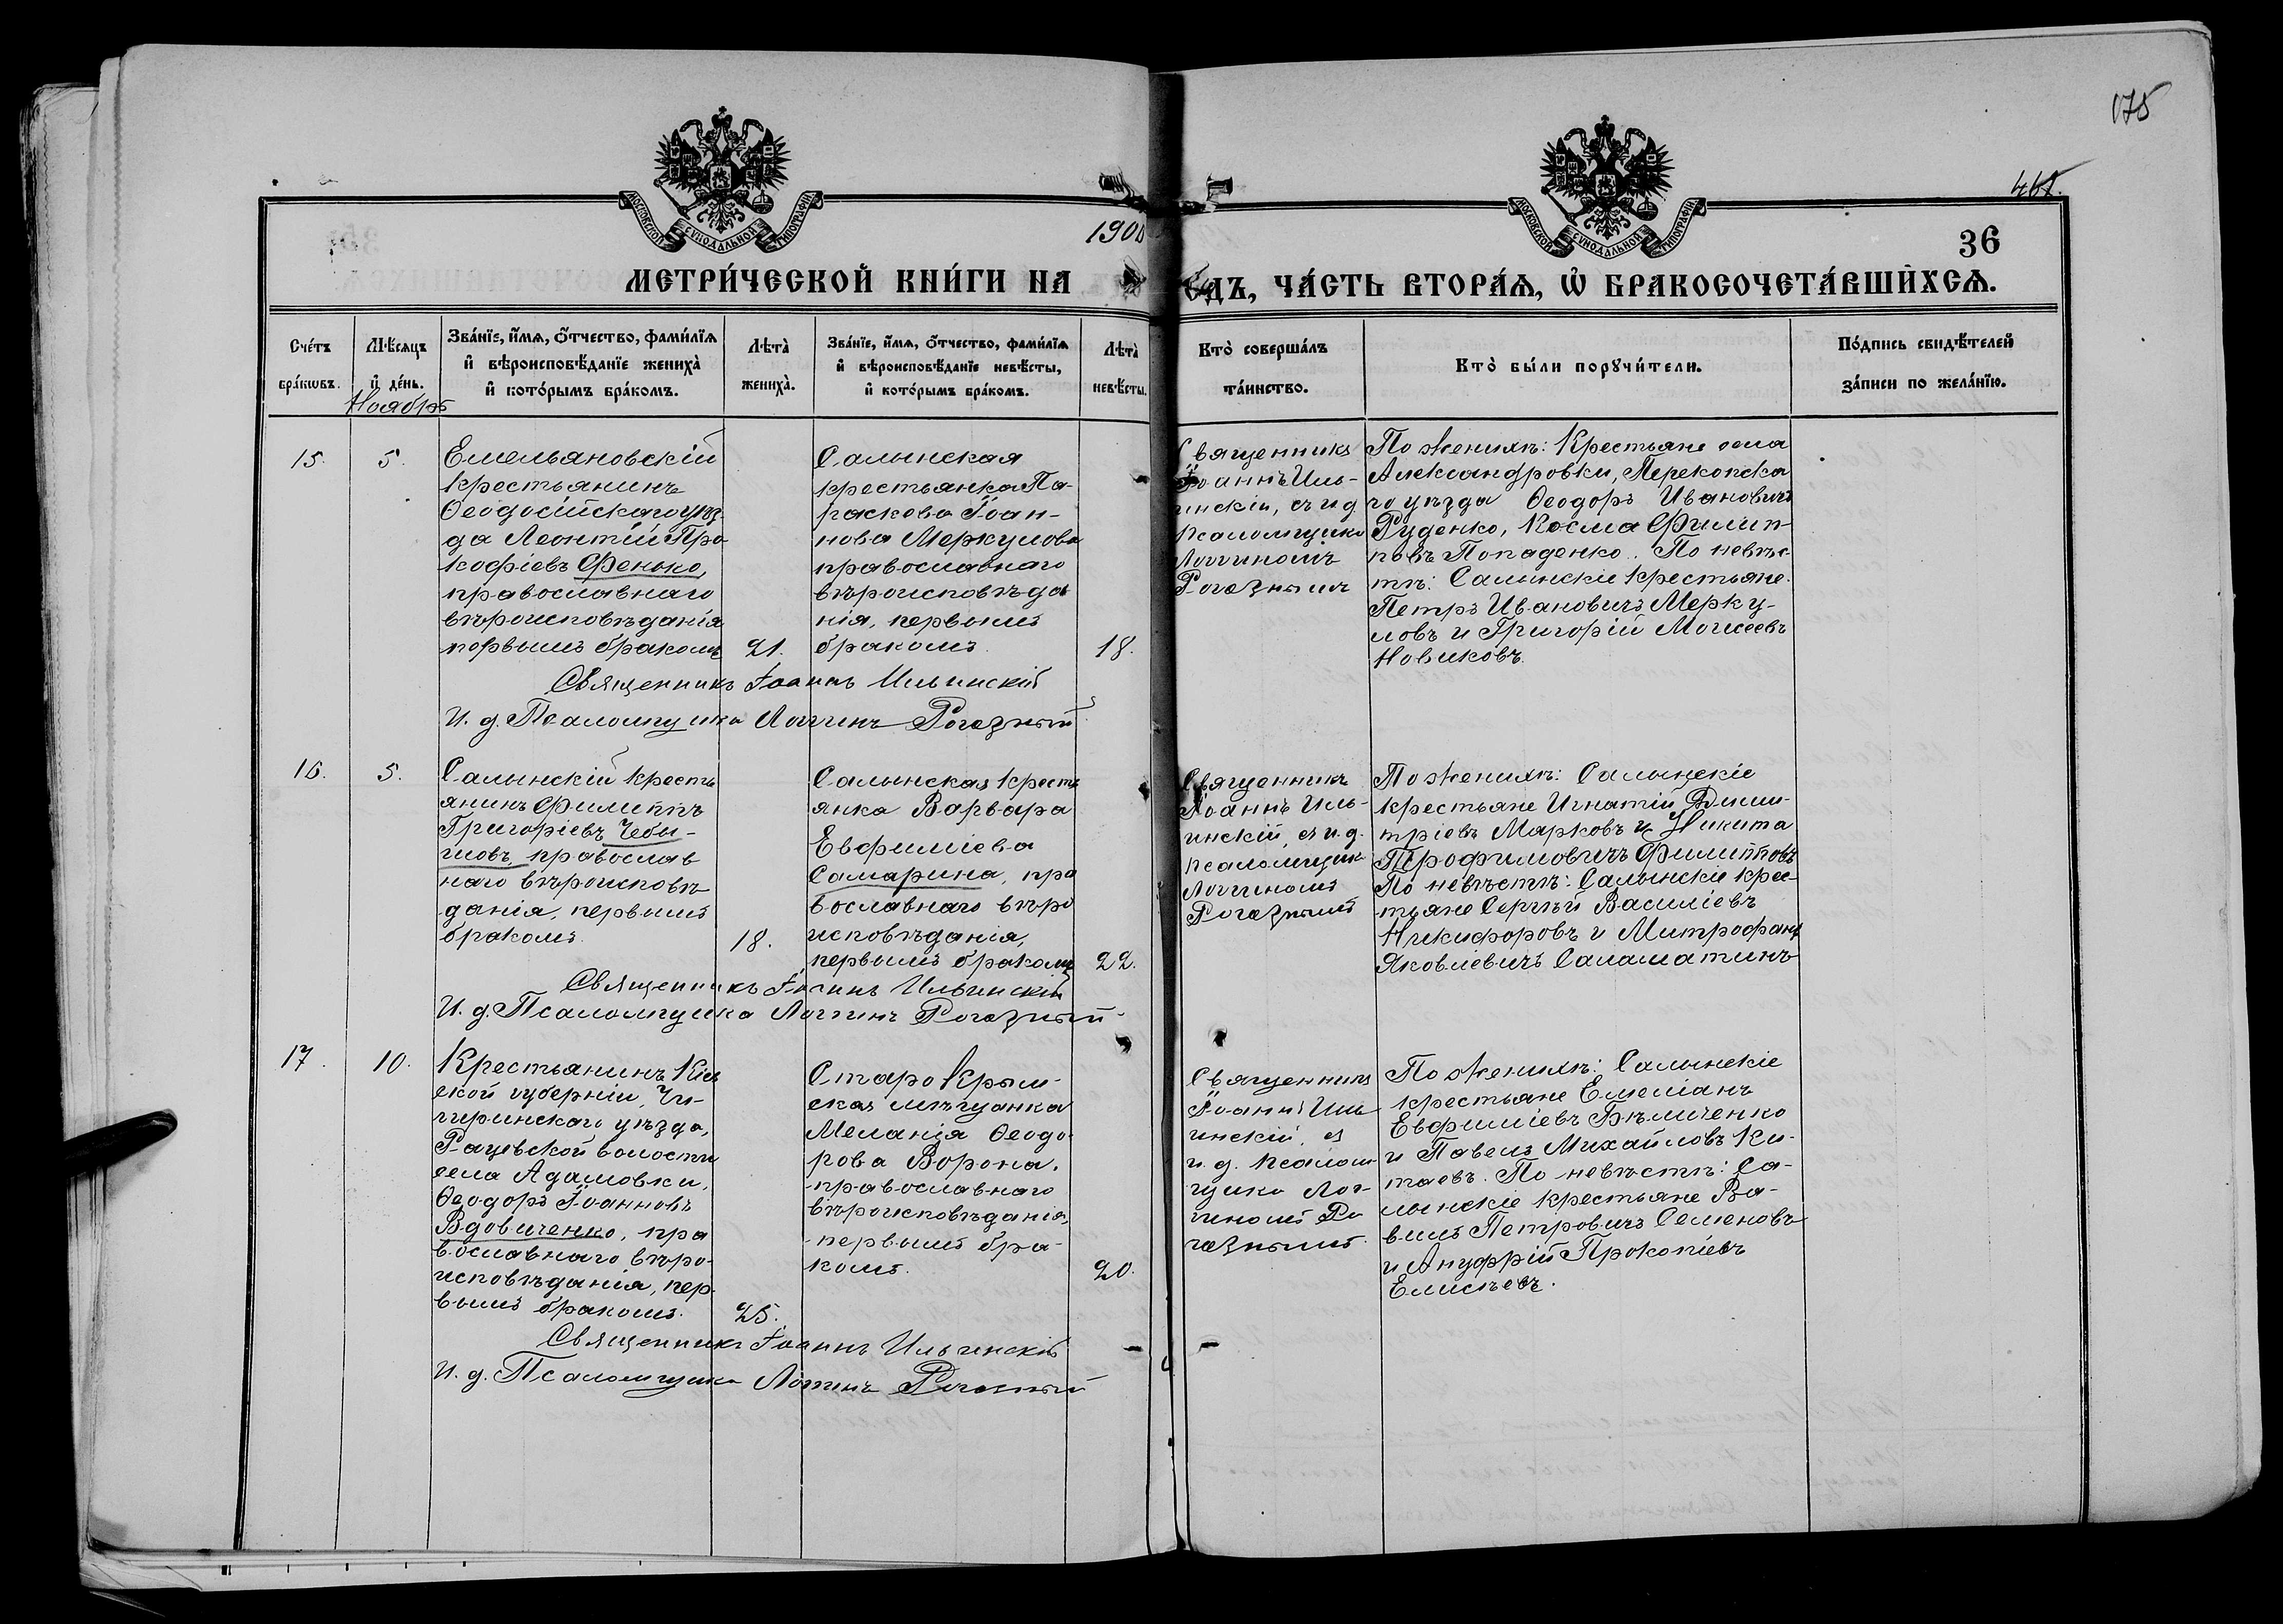 175
461.
МОСКОВСКОЙ СѴНОДАЛЬНОЙ ТИПОГРАФІИ
МОСКОВСКОЙ СѴНОДАЛЬНОЙ ТИПОГРАФІИ
190
36
МЕТРИ́ЧЕСКОЙ КНИ́ГИ НА
ГОДЪ, ЧА́СТЬ ВТОРА́Ѧ, Ѡ БРАКОСОЧЕТА́ВШИХСѦ.
Сче́тъ
бра́кѡвъ.
Мѣ́сяцъ
и де́нь.
Ноябрь
Зва́нїе, и́мѧ, ѻ́тчество, фами́лїѧ
и҆ вѣроисповѣ́данїе жениха̀
и҆ кото́рымъ бра́комъ.
Лѣта̀
жениха̀.
Зва́нїе, и́мѧ, ѻ́тчество, фами́лїѧ
и҆ вѣроисповѣ́данїе невѣ́сты,
и҆ кото́рымъ бра́комъ.
Лѣта̀
невѣ́сты.
Кто̀ соверша́лъ
та́инство.
Кто̀ бы́ли порꙋчи́тели.
По́дпись свидѣ́телей
за́писи по жела́нїю.
15.
5.
Емельяновскій
крестьянинъ
Ѳеодосійскаго уѣз-
да Леонтій Про
кофіевъ Фенько,
православнаго
вѣроисповѣданія
первымъ бракомъ
21.
Салынская
крестьянка Па-
раскева Іоан-
нова Меркулова
православнаго
вѣроисповѣда
нія, первымъ
бракомъ.
18.
Священникъ
Іоаннъ Иль-
инскій, съ и д
псаломщика
Логгиномъ
Рогозным
По женихѣ: Крестьяне села
Александровки, Перекопска
го уѣзда Ѳеодоръ Ивановичъ
Руденко, Косма Филип-
повъ Попаденко. По невѣс-
тѣ: Салынскіе крестьяне
Петръ Ивановичъ Мерку-
ловъ и Григорій Моисеевъ
Новиковъ.
Священникъ Іоаннъ Ильинскій
И. д. Псаломщика Логгинъ Рогозный
16.
5.
Салынскій кресть
янинъ Филиппъ
Григоріевъ Чебы-
шовъ, православ
наго вѣроисповѣ
данія, первымъ
бракомъ.
18.
Салынская кресть
янка Варвара
Евфиміева
Самарина, пра
вославнаго вѣро
исповѣданія,
первымъ бракомъ
22.
Священникъ
Іоаннъ Иль-
инскій, съ и. д.
псаломщика
Логгиномъ
Рогознымъ
По женихѣ: Салынскіе
крестьяне Игнатій Дими-
тріевъ Марковъ и Никита
Трофимовичъ Филипповъ
По невѣстѣ: Салынскіе крес-
тьяне Сергѣй Василіевъ
Никифоровъ и Митрофанъ
Яковлевичъ Саламатинъ
Священникъ Іоаннъ Ильинскій
И. д. Псаломщика Логгинъ Рогозный
17.
10.
Крестьянинъ Кіев
ской губерніи, Чи-
гиринскаго уѣзда,
Рацевской волости
села Адамовки,
Ѳеодоръ Іоанновъ
Вдовиченко, пра
вославнаго вѣро-
исповѣданія, пер-
вымъ бракомъ.
25.
Старо Крым-
ская мѣщанка
Меланія Ѳеодо-
рова Ворона,
православнаго
вѣроисповѣданія,
первымъ бра-
комъ.
20.
Священникъ
Іоаннъ Иль
инскій, съ
и. д. псалом
щика Лог-
гиномъ Ро
гознымъ.
По женихѣ: Салынскіе
крестьяне Емеліанъ
Евфиміевъ Бѣличенко
и Павелъ Михайловъ Ки-
таевъ. По невѣстѣ: Са-
лынскіе крестьяне Ва-
вилъ Петровичъ Семеновъ
и Ануфрій Прокопіевъ
Елисѣевъ.
Священникъ Іоаннъ Ильинскій
И. д. Псаломщика Логгинъ Рогозный